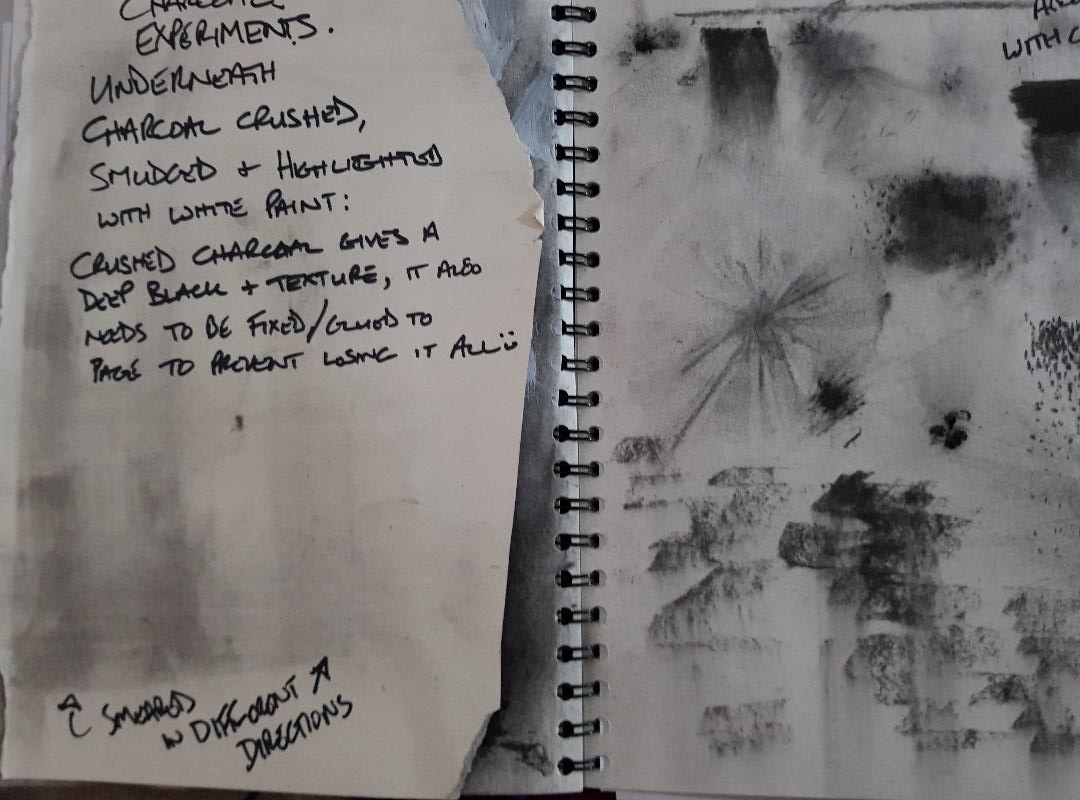 EXPERIMENTS.
UNDERNEATH
CHARCOAL CRUSHED,
SMUDGED + HIGHLIGHTED
WITH WHITE PAINT:
CRUSHED CHARCOAL GIVES A
DEEP BLACK + TEXTURE, IT ALSO
NEEDS TO BE FIXED/GLUED TO
PAGE TO PREVENT LOSING IT ALL
SMEARED
IN DIFFERENT
DIRECTIONS
WITH